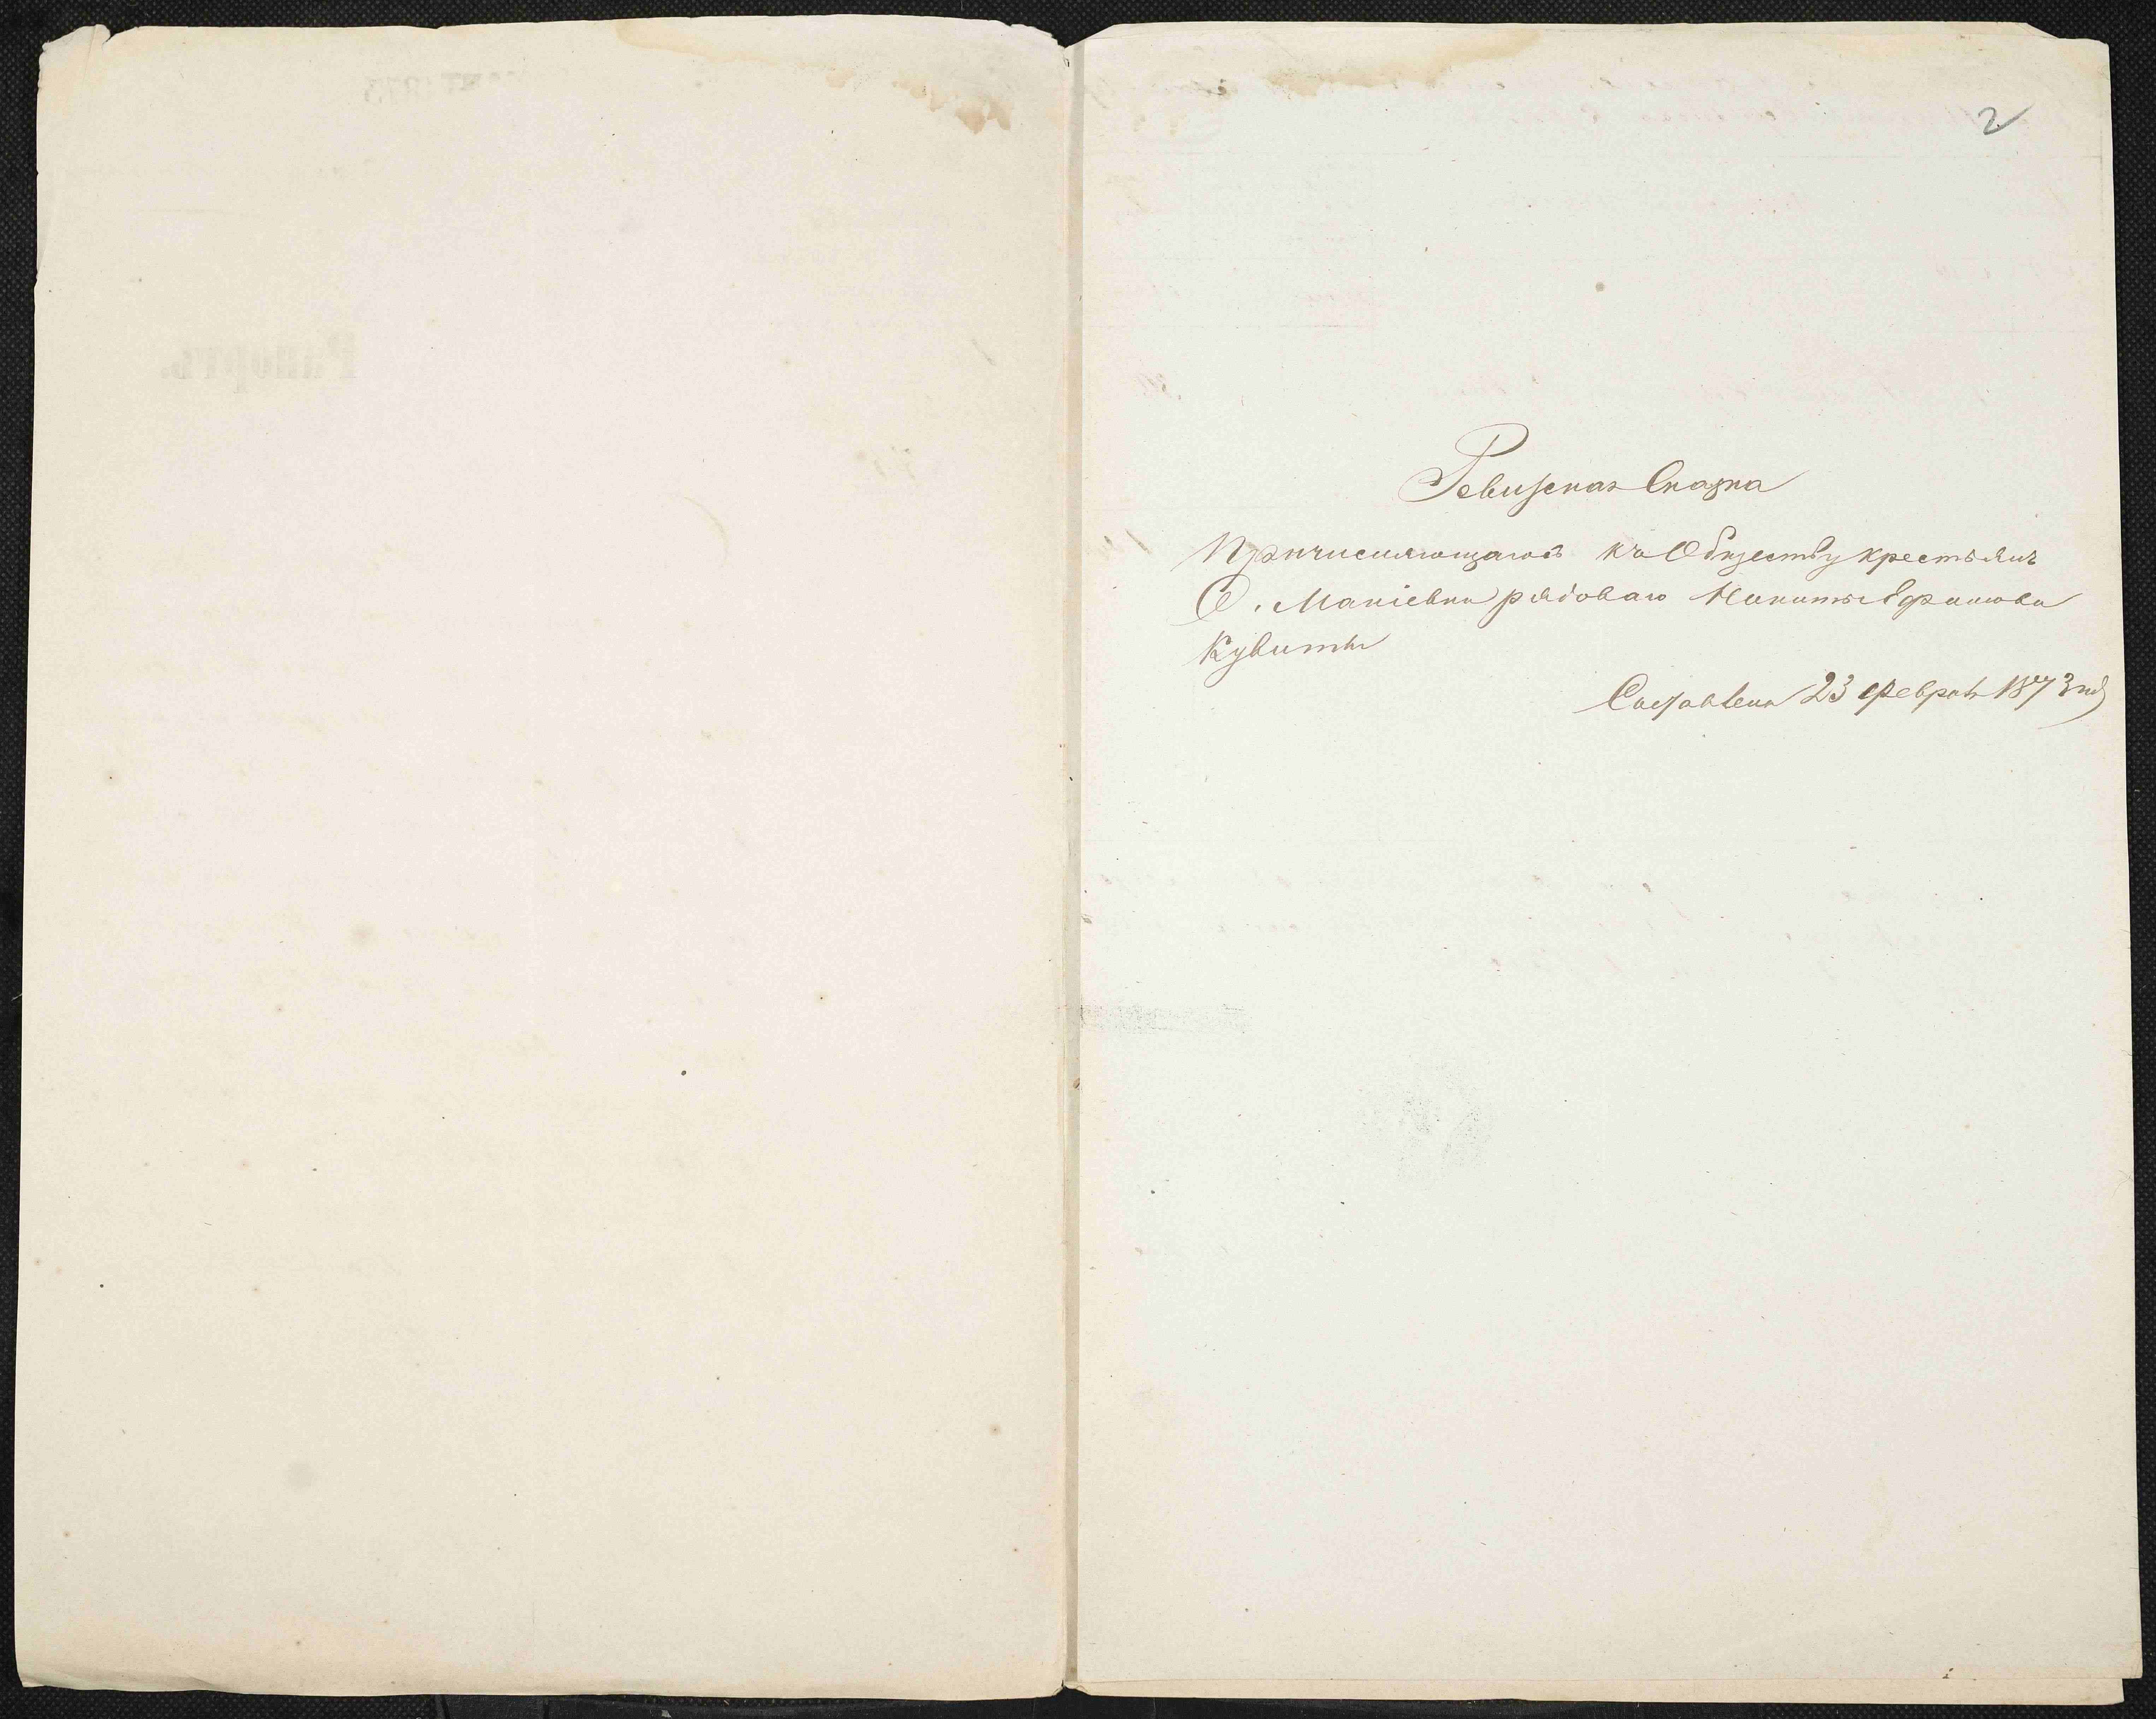 2
Ревизская Сказка
Причисляющагося къ Обществу крестьянъ
С. Макіевки рядоваго Никиты Ефимова
Кувиты
Составлена 23 Февраля 1873 год